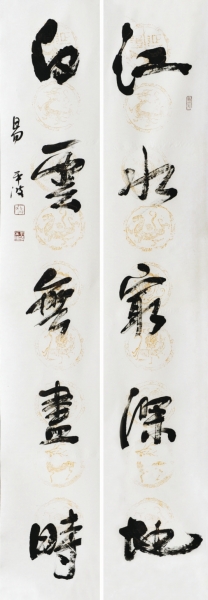 江水穷深地
白雲無盡時
易平波